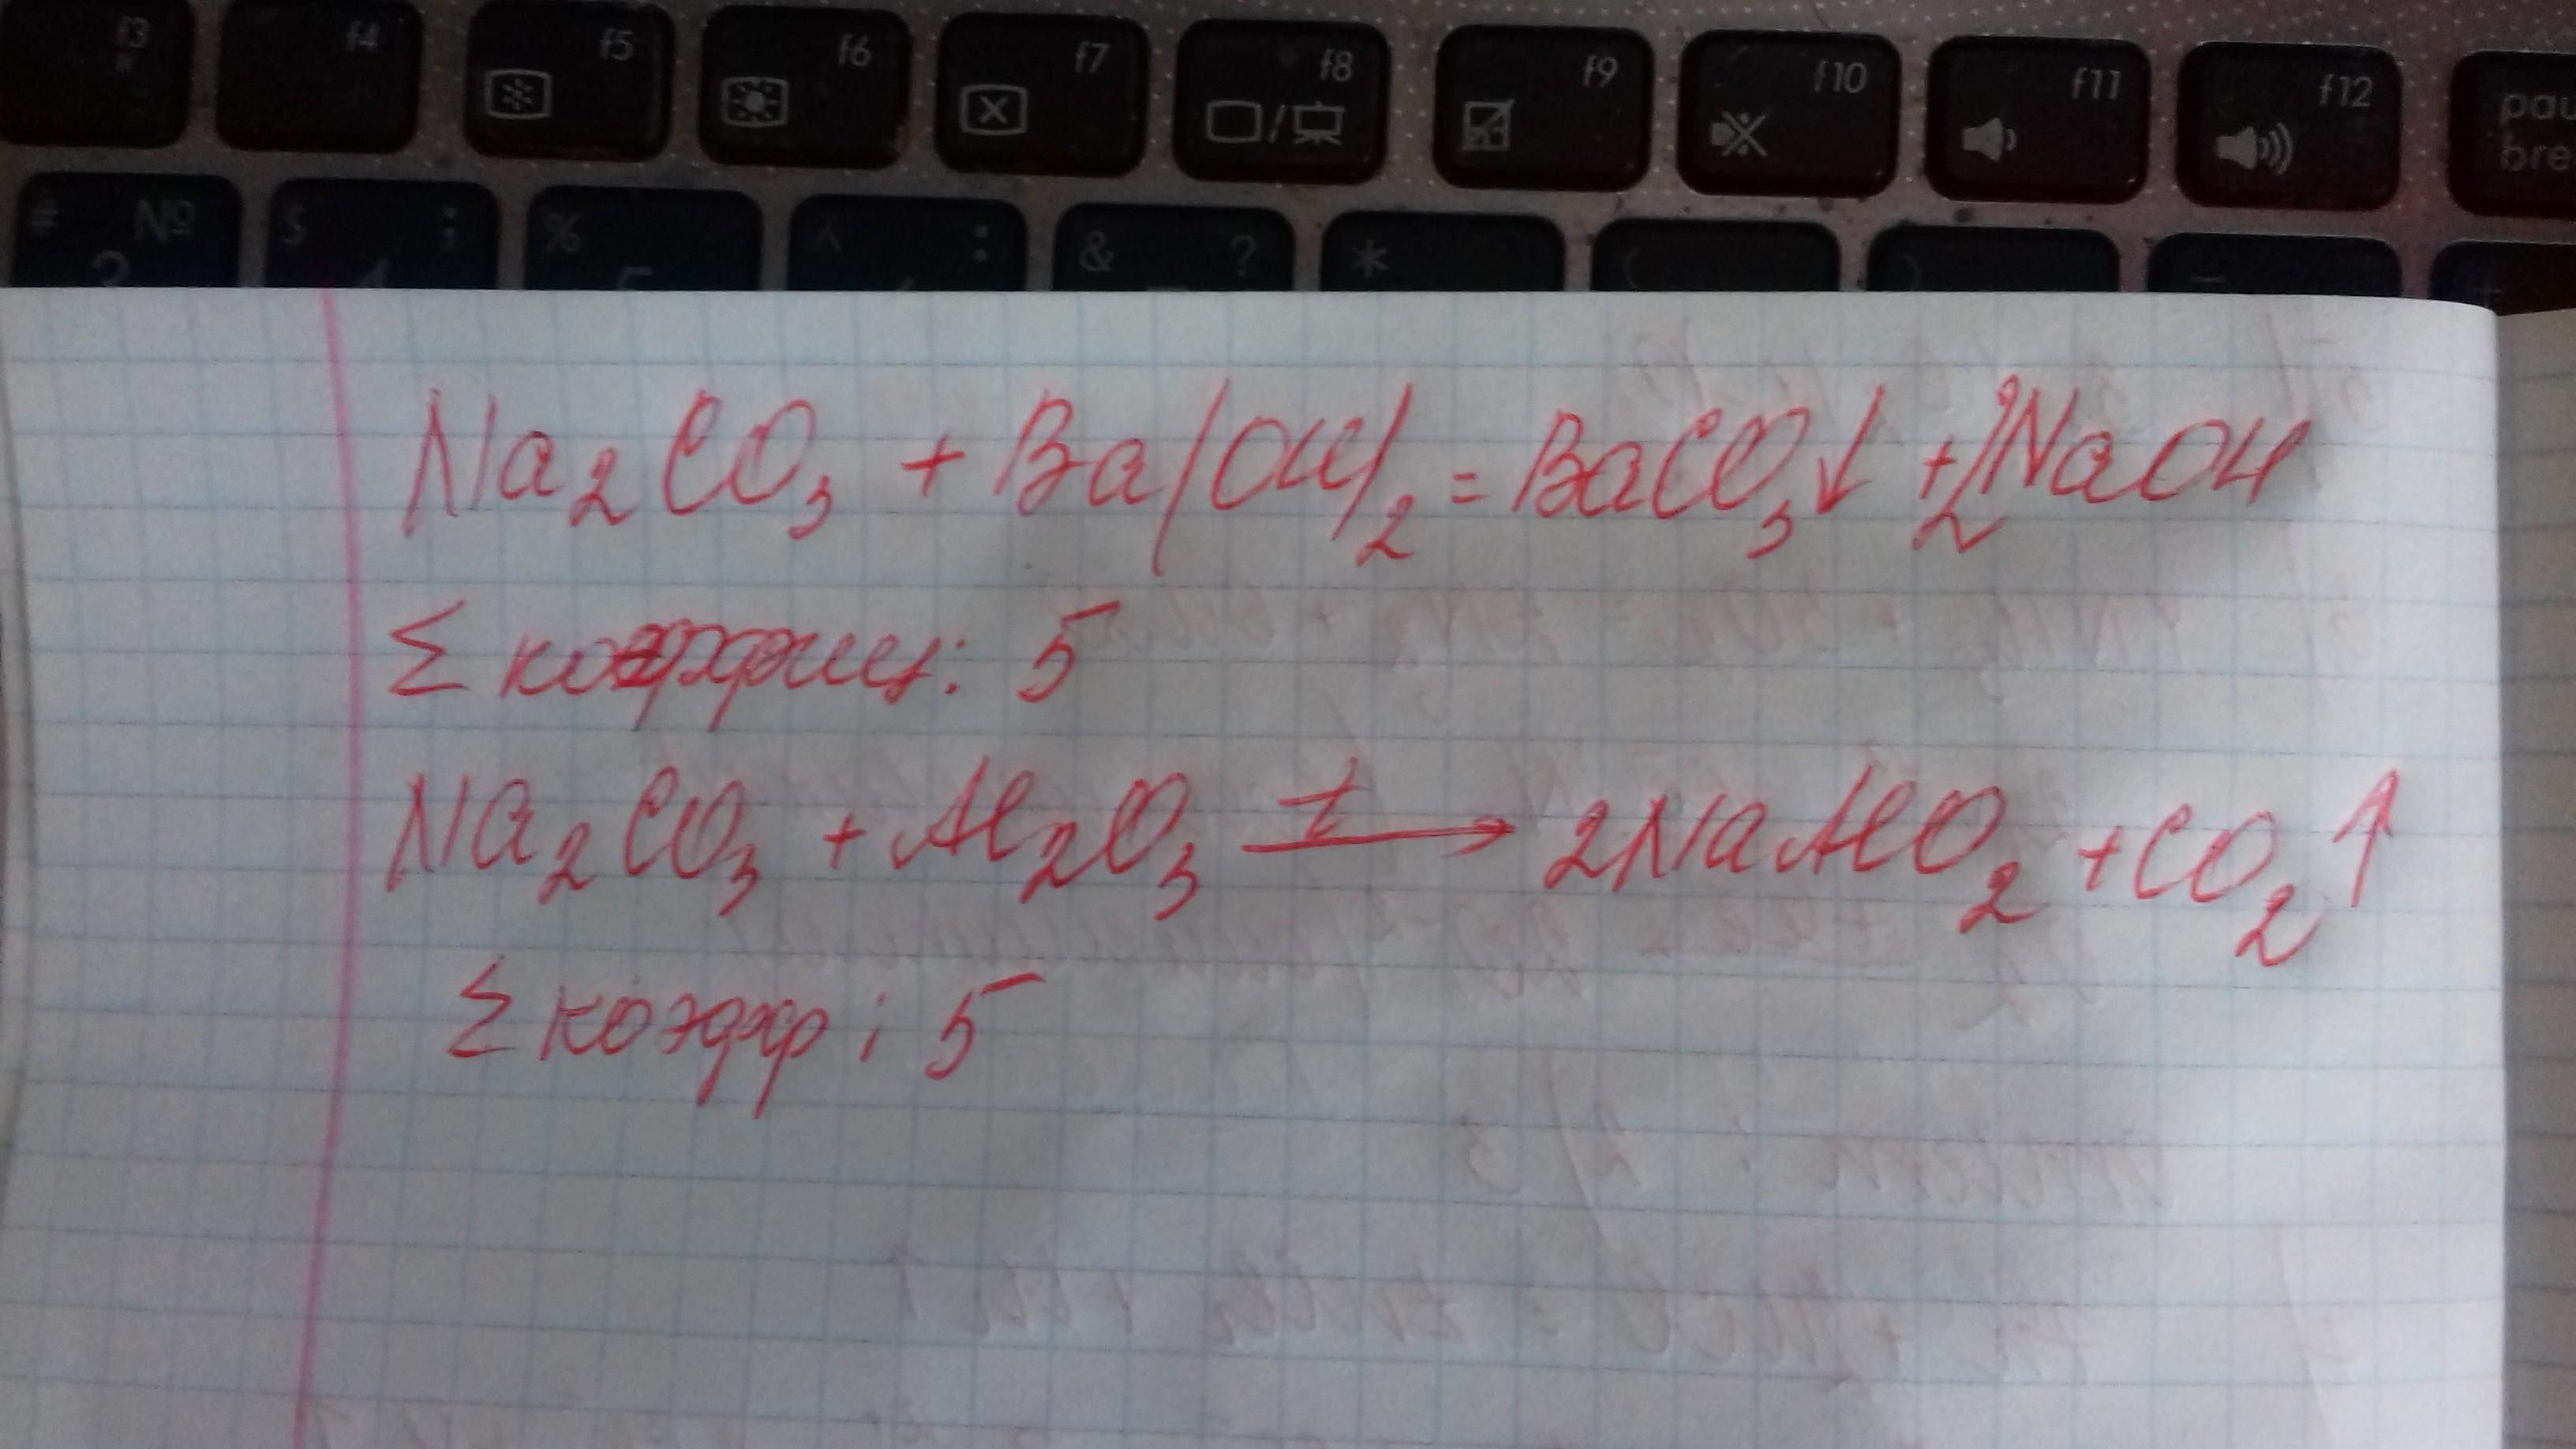 f3 f4 f5 f6 f7 f8 f9 f10 f11 f12
# № $ ; % : & ? * ( )
Na₂CO₃ + Ba(OH)₂ = BaCO₃↓ + 2NaOH
Σ коэффиц: 5
Na₂CO₃ + Al₂O₃ t→ 2NaAlO₂ + CO₂↑
Σ коэфф: 5